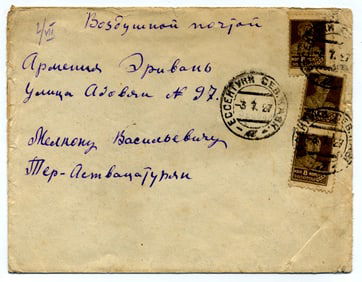 4/VII
Воздушной почтой
Армения Эривань
улица Абовян № 97
Мелкону Васильевичу
Тер-Аствацатурян
ЕССЕНТУКИ СЕВ.КАВК.
-3 7. 27